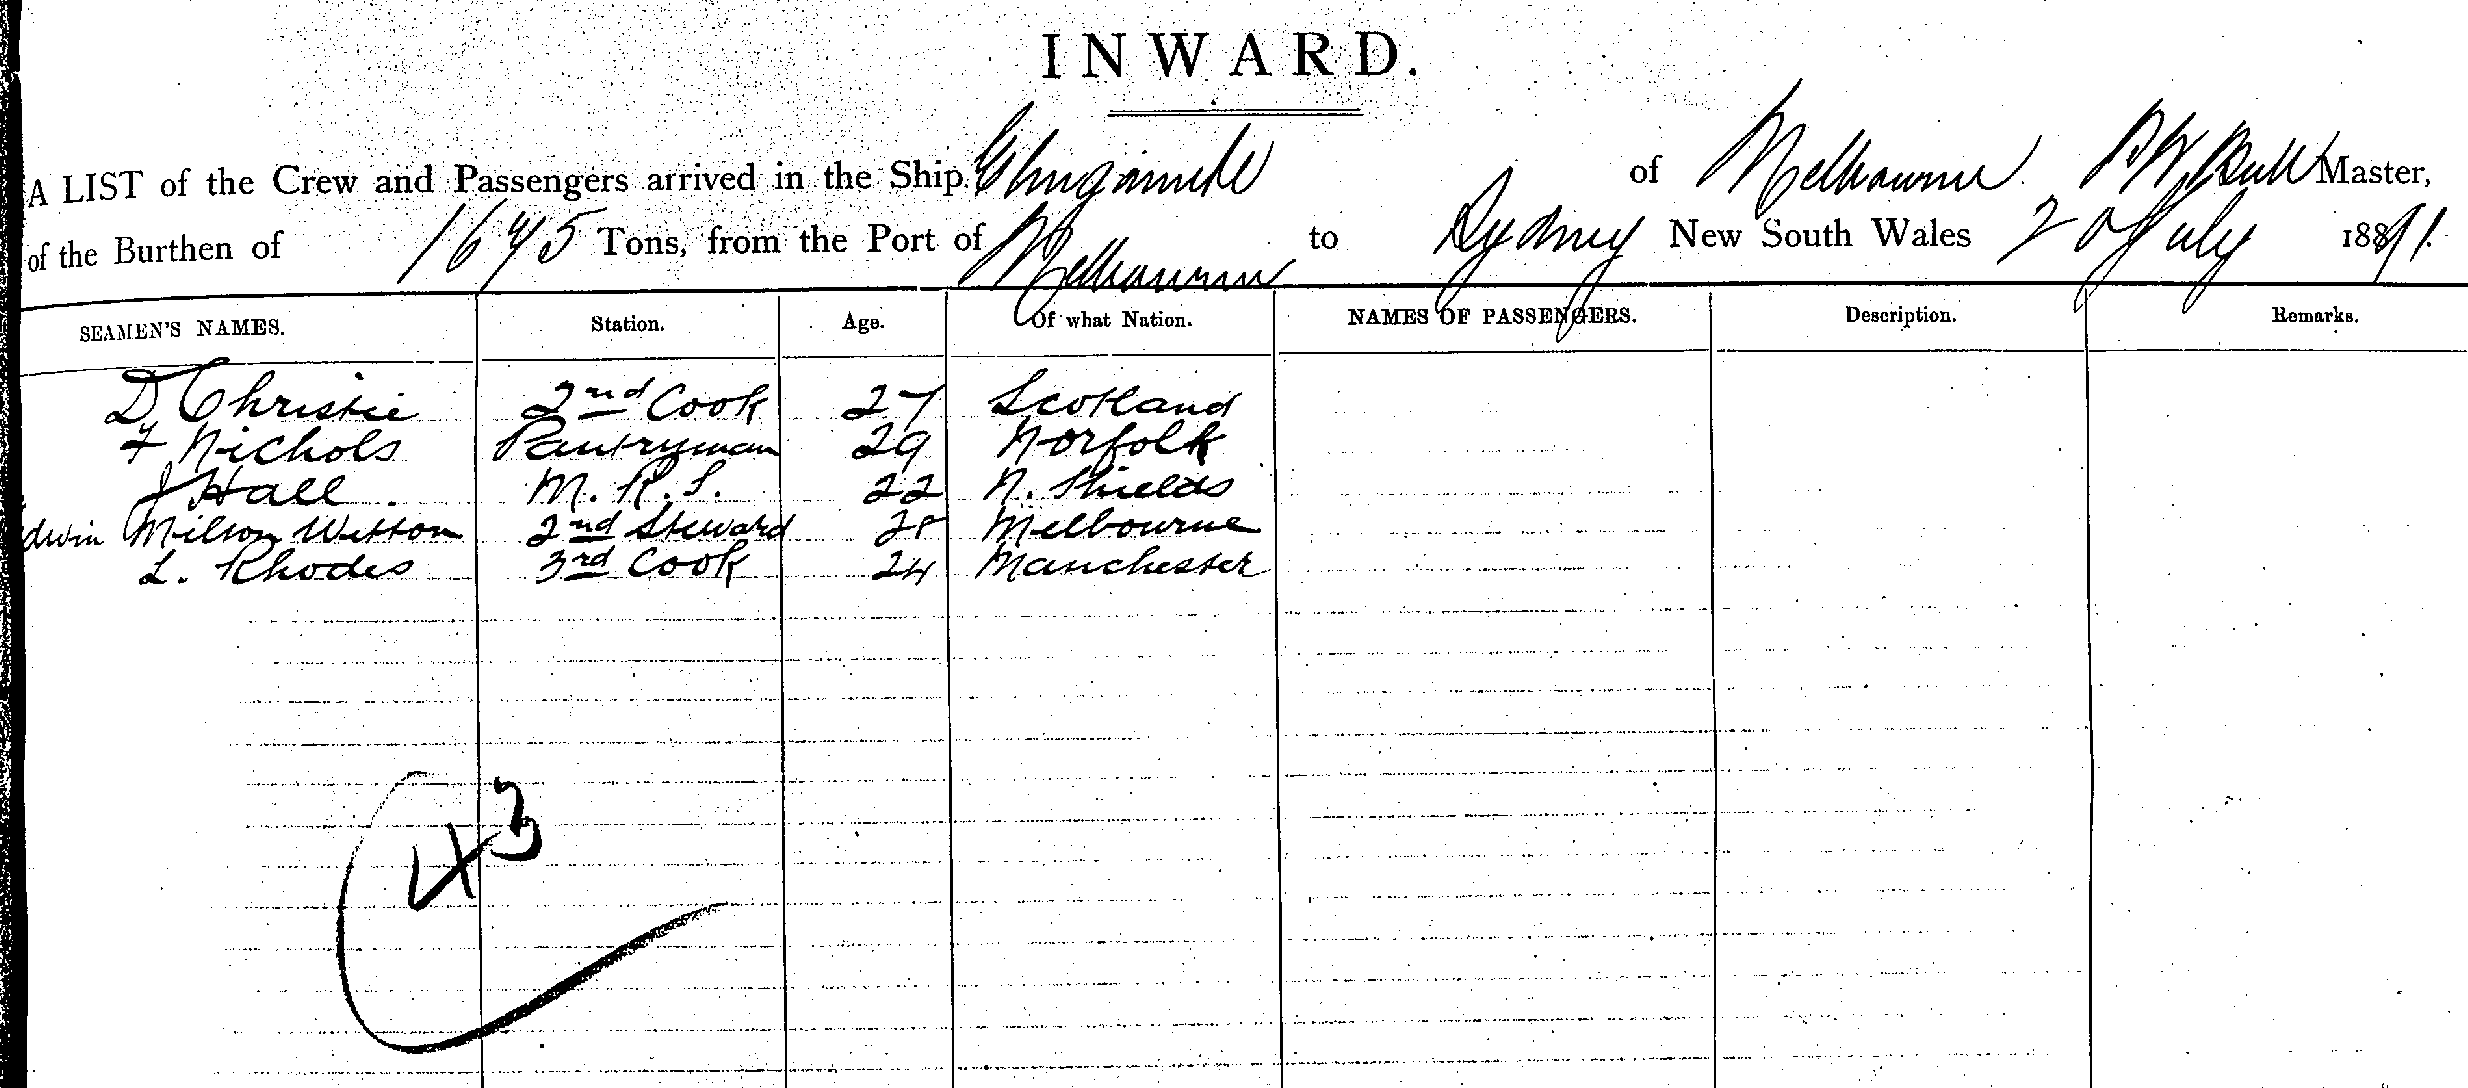 INWARD.
A LIST of the Crew and Passengers arrived in the Ship of Melbourne Bull Master,
of the Burthen of 1645 Tons, from the Port of Melbourne to Sydney New South Wales 20 July 1891.
SEAMEN'S NAMES. Station. Age. Of what Nation. NAMES OF PASSENGERS. Description. Remarks.
D Christie 2nd Cook 27 Scotland
F Nichols Pantryman 29 Norfolk
J Hall M. R. S. 22 N. Shields
dwin Milson Witton 2nd Steward 28 Melbourne
L. Rhodes 3rd Cook 24 Manchester
43